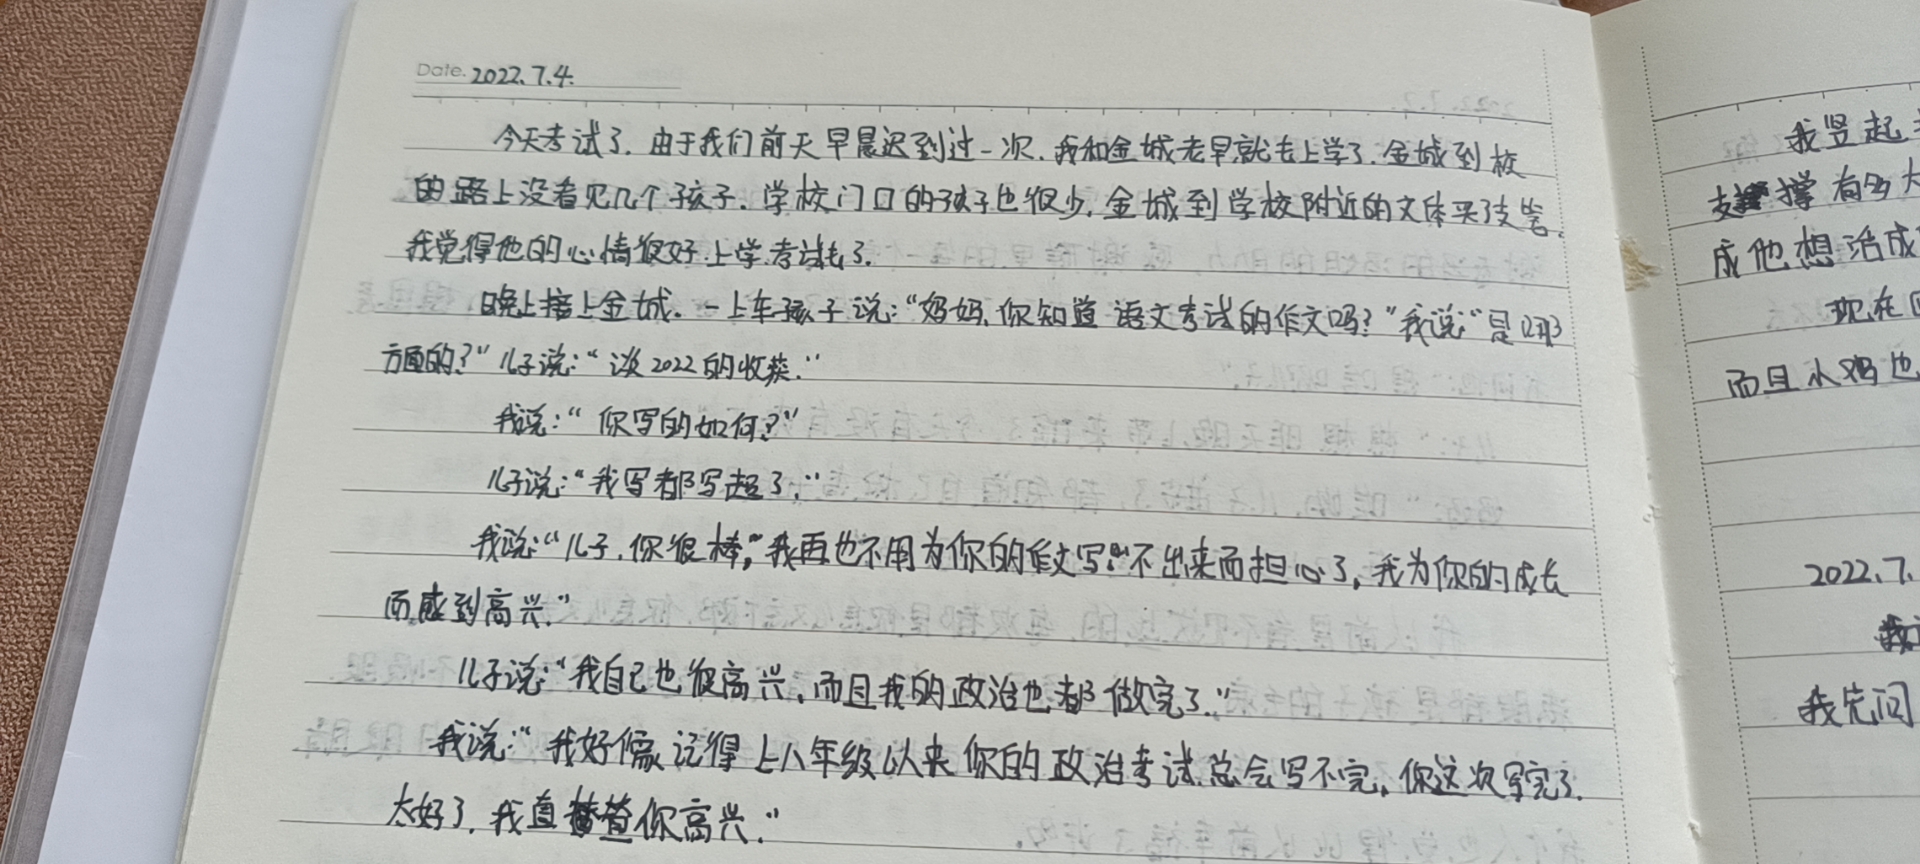 Date. 2022.7.4.
今天考试了.由于我们前天早晨迟到过一次.我和金城老早就去上学了.金城到校
的路上没看见几个孩子.学校门口的孩子也很少.金城到学校附近的文体买了支笔.
我觉得他的心情很好.上学.考试去了.
晚上接上金城.一上车孩子说:“妈妈,你知道语文考试的作文吗?”我说“是哪
方面的?”儿子说:“谈2022的收获.”
我说:“你写的如何?”
儿子说:“我写都写超了.”
我说:“儿子,你很棒,”我再也不用为你的作文写不出来而担心了,我为你的成长
而感到高兴.”
儿子说:“我自己也很高兴,而且我的政治也都做完了.”
我说:“我好像记得上八年级以来你的政治考试总会写不完,你这次写完了.
太好了.我真替你高兴.”
我竖起
支撑有多大
成他想活成
现在
而且小鸡也
2022.7.
我
我先问